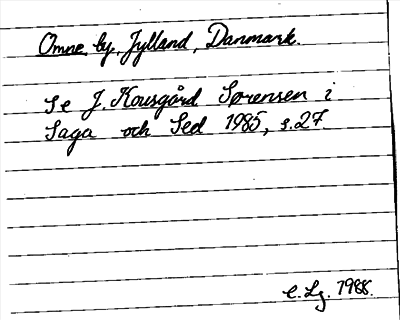 Omne, by, Jylland, Danmark.
Se J. Kousgård Sørensen i
Saga och Sed 1985, s. 27.
E. Lg. 1988.